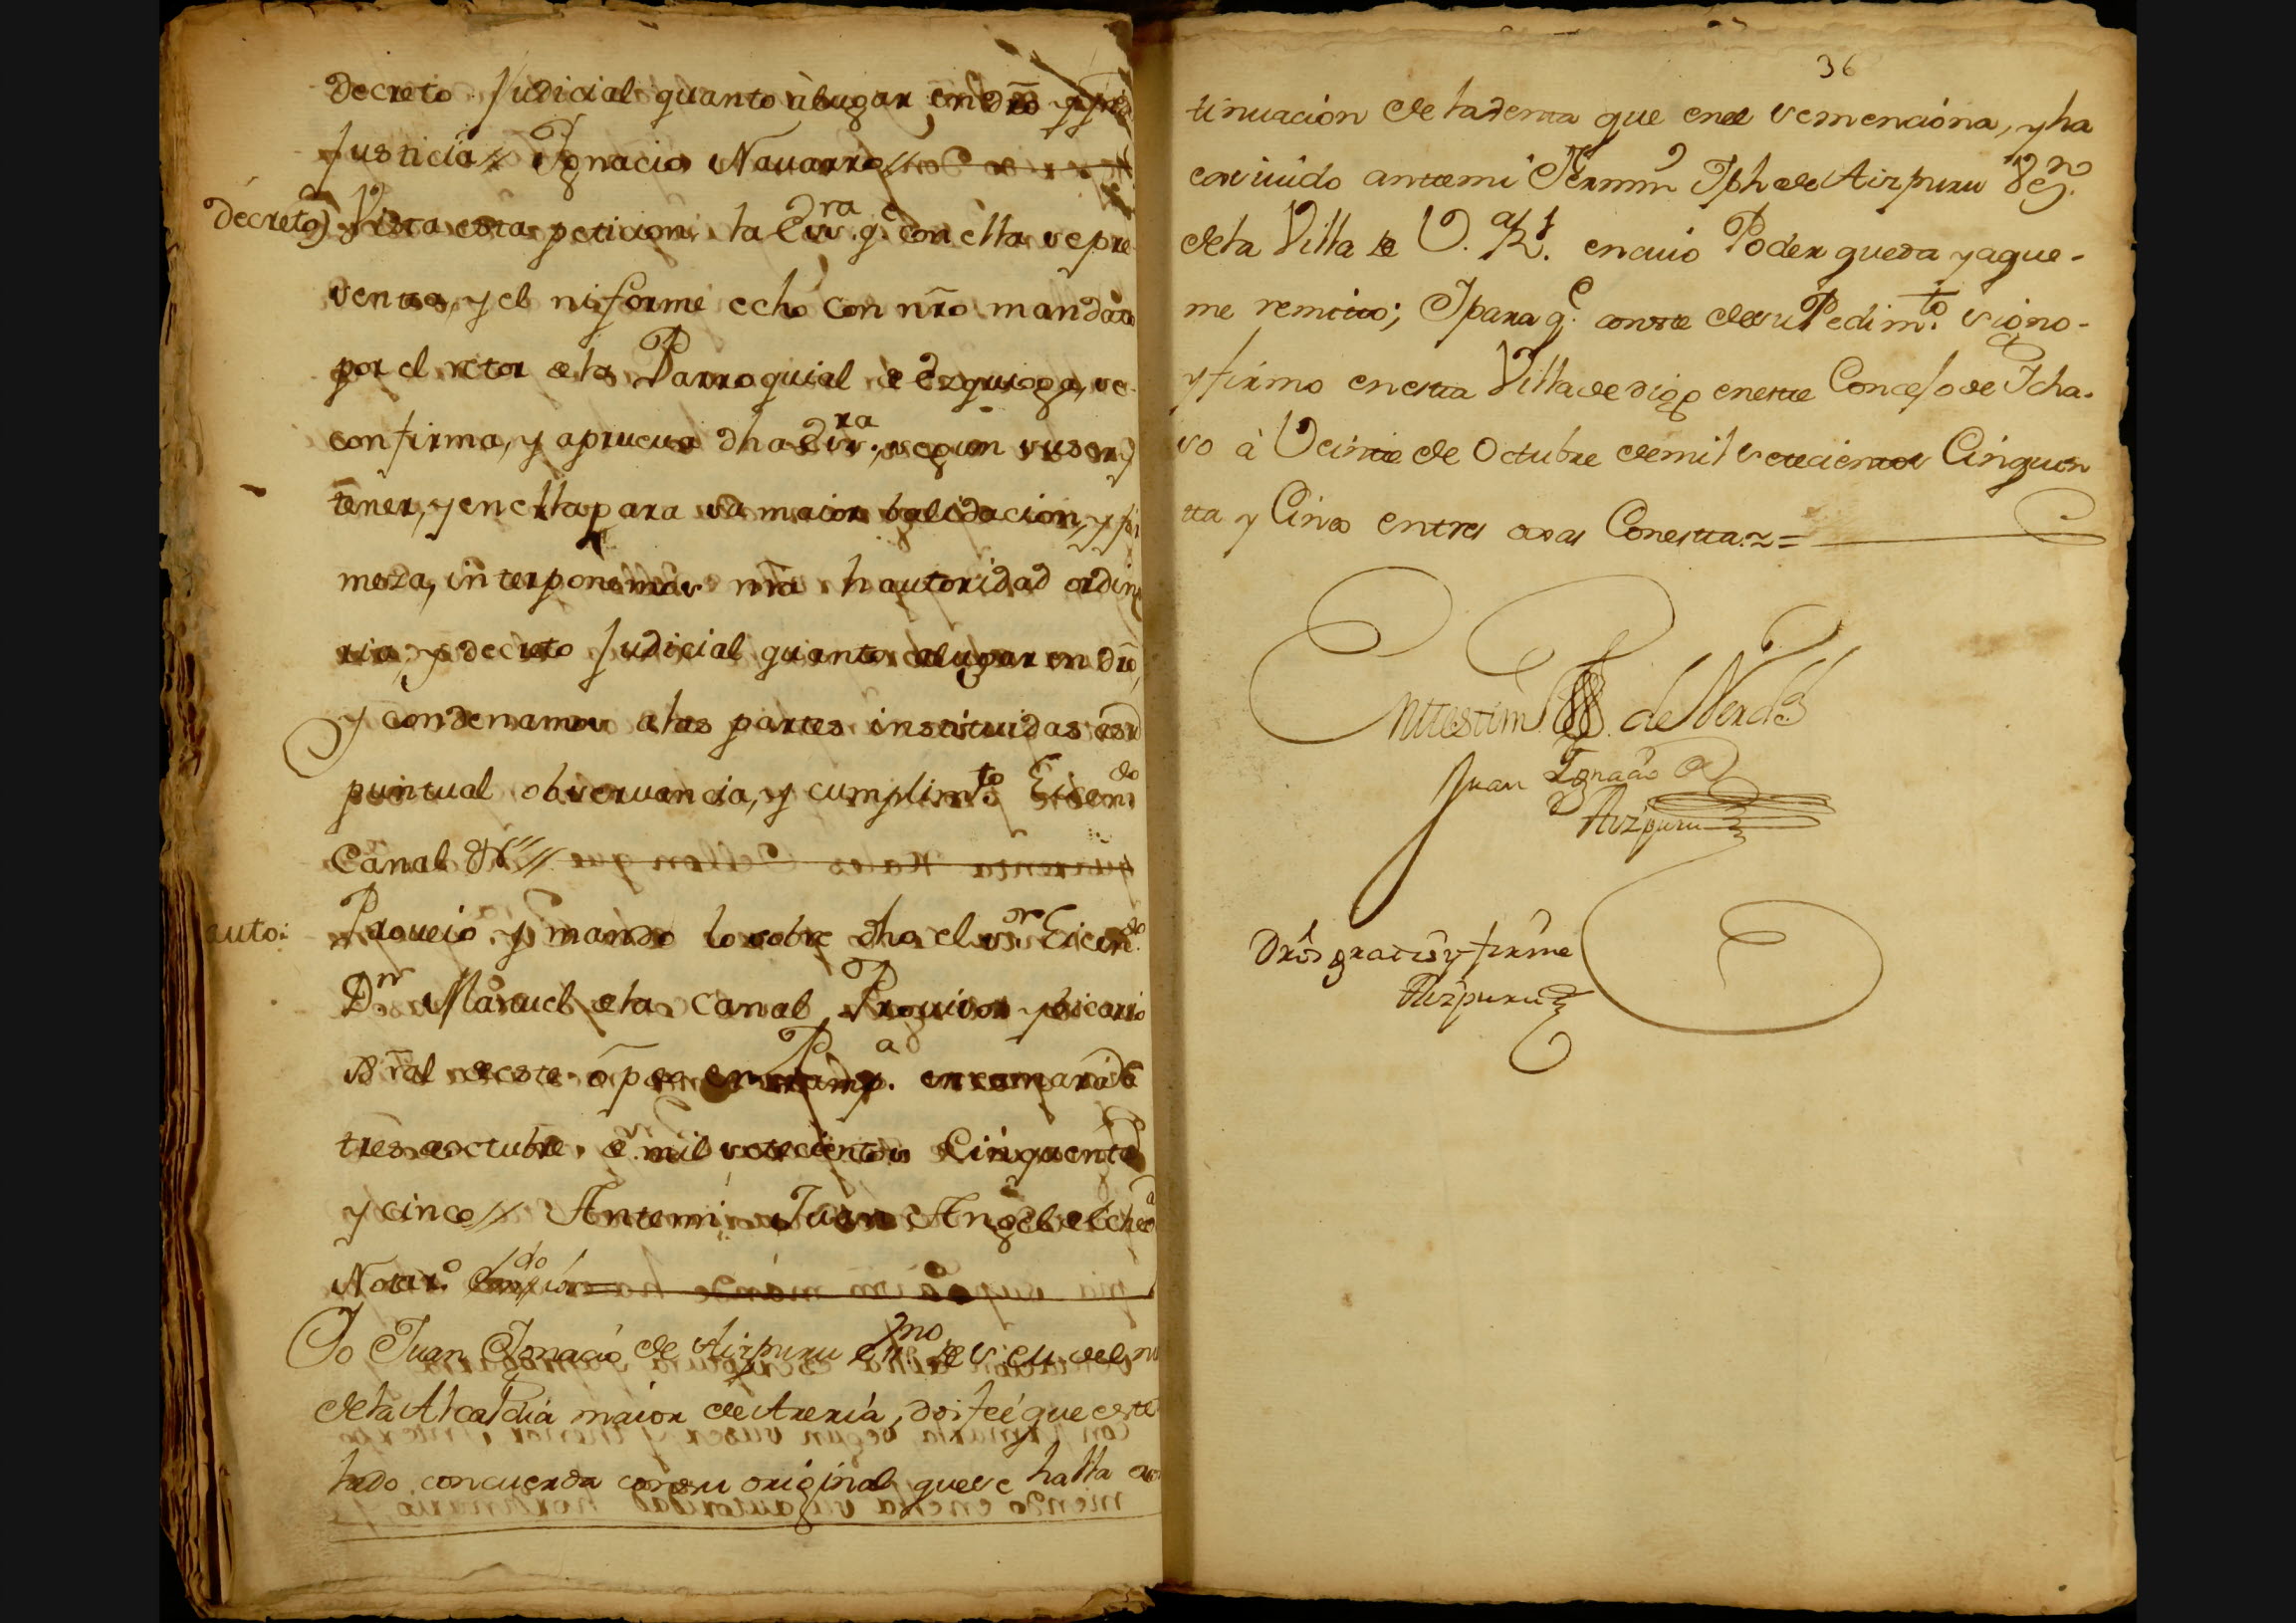 decreto Judicial quanto àlugar en dr̃o y pido
Justicia // Ygnacio Nauarro //
decreto) Vista esta peticion, la Esr.ra q.e con ella se pre
senta, y el ynforme echo con nr̃o mandato
por el retor de la Parroquial de Ezquioga, se
confirma, y aprueua dha Esr.ra, segun su ser, y
tener, y en ella para su maior balidacion, y fir
meza, interponemos nr̃a hautoridad ordina
ria, y decreto Judicial quanto alugar en dr̃o,
y condenamos a las partes instituidas a su
puntual obseruancia, y cumplim.to Licen.do
Canal //
auto: Proueió y mando lo sobre dho el s.or Licen.do
D.n Manuel de la Canal Prouisor y bicario
gr̃al de este õpdo en Pamp.a en camara à
tres de octubre de mil setecientos Cinquenta
y cinco // Antemi Juan Angel de Echeu.a
Notar.o
Yo Juan Ygnacio de Aizpuru ess.no de s. m. del no
de la Alcaldia maior de Areria, doi feé que este tras
lado concuerda con su original que se halla a con
36
tinuacion de la demta que en el se menciona, y ha
exsiuido antemi Fermin Jph de Aizpuru Vez.no
de la Villa de V. R.l en cuio Poder queda y a que
me remito; Y para q.e conste de su Pedim.to signo
y firmo en esta Villa de digo en este Concejo de Ycha
so à Veinte de Octubre de mil setecientos Cinquen
ta y Cinco entres oxas Con esta. ~ =
En testim.o de Verd.d
Juan Ygnacio de
Aizpuru
Dr̃os gratis y firme
Aizpuru